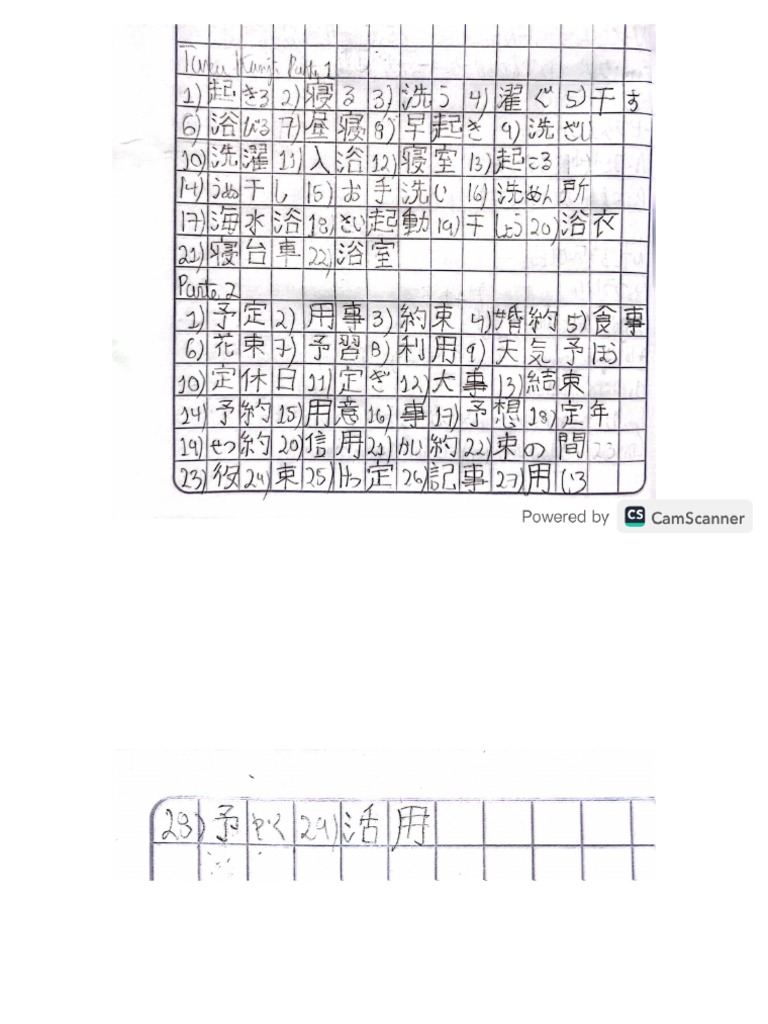 Tarea Kanji Parte 1
1) 起きる 2) 寝る 3) 洗う 4) 濯ぐ 5) 干す
6) 浴びる 7) 昼寝 8) 早起き 9) 洗ざい
10) 洗濯 11) 入浴 12) 寝室 13) 起こる
14) うめ干し 15) お手洗い 16) 洗めん所
17) 海水浴 18) さい起動 19) 干しょう 20) 浴衣
21) 寝台車 22) 浴室
Parte 2
1) 予定 2) 用事 3) 約束 4) 婚約 5) 食事
6) 花束 7) 予習 8) 利用 9) 天気予ほう
10) 定休日 11) 定ぎ 12) 大事 13) 結束
14) 予約 15) 用意 16) 事 17) 予想 18) 定年
19) せつ約 20) 信用 21) かい約 22) 束の間 23
23) 役 24) 束 25) けってい 定 26) 記事 27) 用いる
Powered by CS CamScanner
28) 予やく 29) 活用